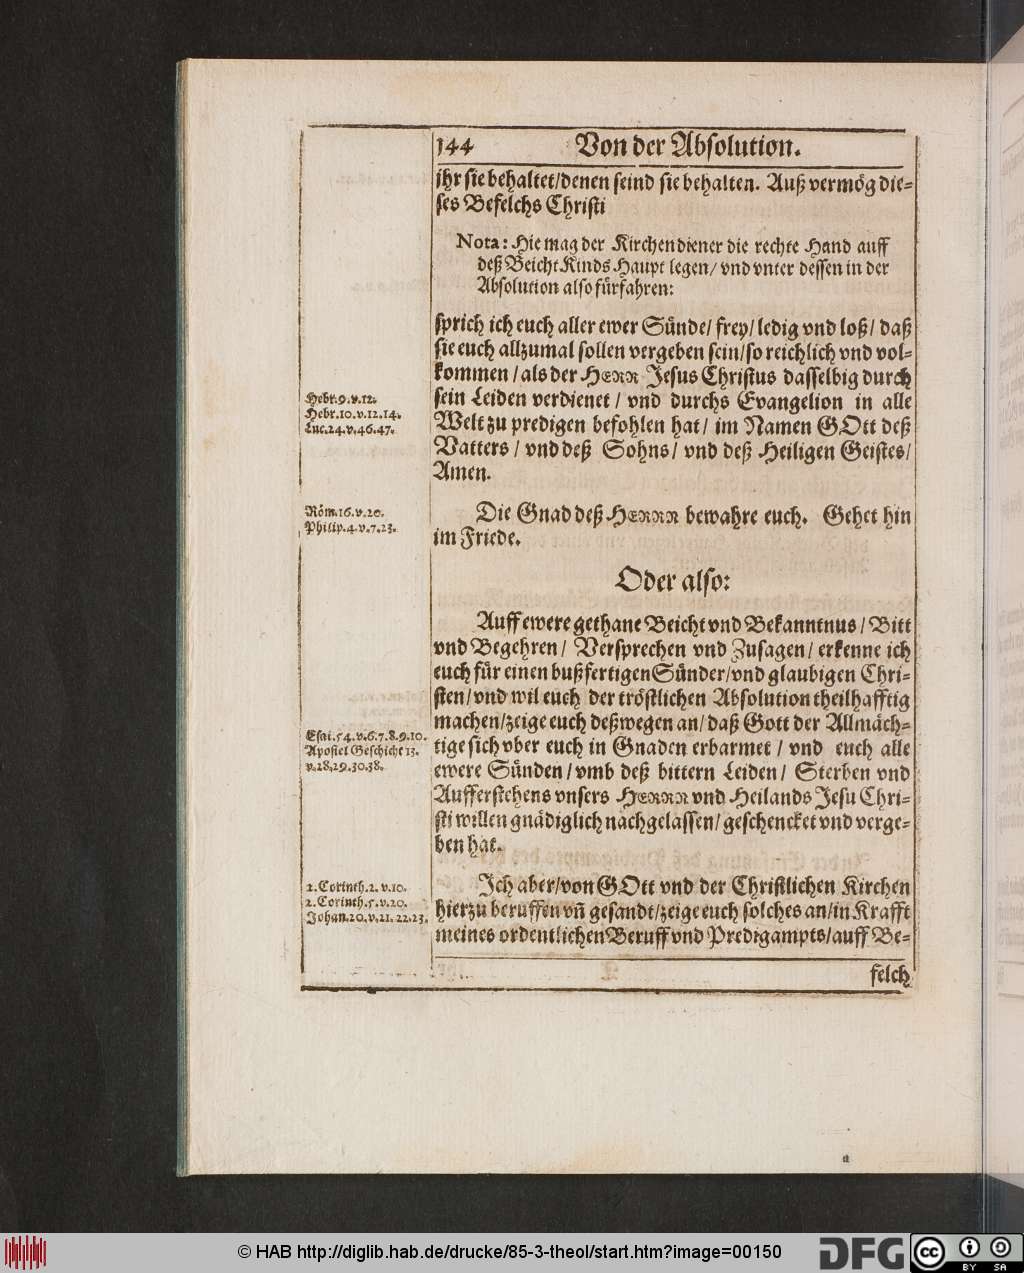 144 Von der Absolution.
ihr sie behaltet/denen seind sie behalten. Auß vermög die-
ses Befelchs Christi
Nota: Hie mag der Kirchendiener die rechte Hand auff
deß Beicht Kinds Haupt legen/ vnd vnter dessen in der
Absolution also fürfahren:
sprich ich euch aller ewer Sünde/ frey/ ledig vnd loß/ daß
sie euch allzumal sollen vergeben sein/so reichlich vnd vol-
kommen /als der HERR Jesus Christus dasselbig durch
sein Leiden verdienet / vnd durchs Evangelion in alle
Welt zu predigen befohlen hat/ im Namen GOtt deß
Vatters / vnd deß Sohns/ vnd deß Heiligen Geistes/
Amen.
Hebr.9.v.12.
Hebr.10.v.12.14.
Luc.24.v.46.47.
Die Gnad deß HERRN bewahre euch. Gehet hin
im Friede.
Röm.16.v.20.
Philip.4.v.7.23.
Oder also:
Auff ewere gethane Beicht vnd Bekanntnus/ Bitt
vnd Begehren/ Versprechen vnd Zusagen/ erkenne ich
euch für einen bußfertigen Sünder/vnd glaubigen Chri-
sten/vnd wil euch der tröstlichen Absolution theilhafftig
machen/zeige euch deßwegen an/ daß Gott der Allmäch-
tige sich vber euch in Gnaden erbarmet / vnd euch alle
ewere Sünden/ vmb deß bittern Leiden/ Sterben vnd
Aufferstehens vnsers HERRN vnd Heilands Jesu Chri-
sti willen gnädiglich nachgelassen/ geschencket vnd verge-
ben hat.
Esai.54.v.6.7.8.9.10.
Apostel Geschicht 13.
v.28.29.30.38.
Ich aber/von GOtt vnd der Christlichen Kirchen
hierzu beruffen vñ gesandt/zeige euch solches an/in Krafft
meines ordentlichen Beruff vnd Predigampts/auff Be-
2.Corinth.2.v.10.
2.Corinth.5.v.20.
Johan.20.v.21.22.23.
felch
© HAB http://diglib.hab.de/drucke/85-3-theol/start.htm?image=00150
DFG
cc BY SA